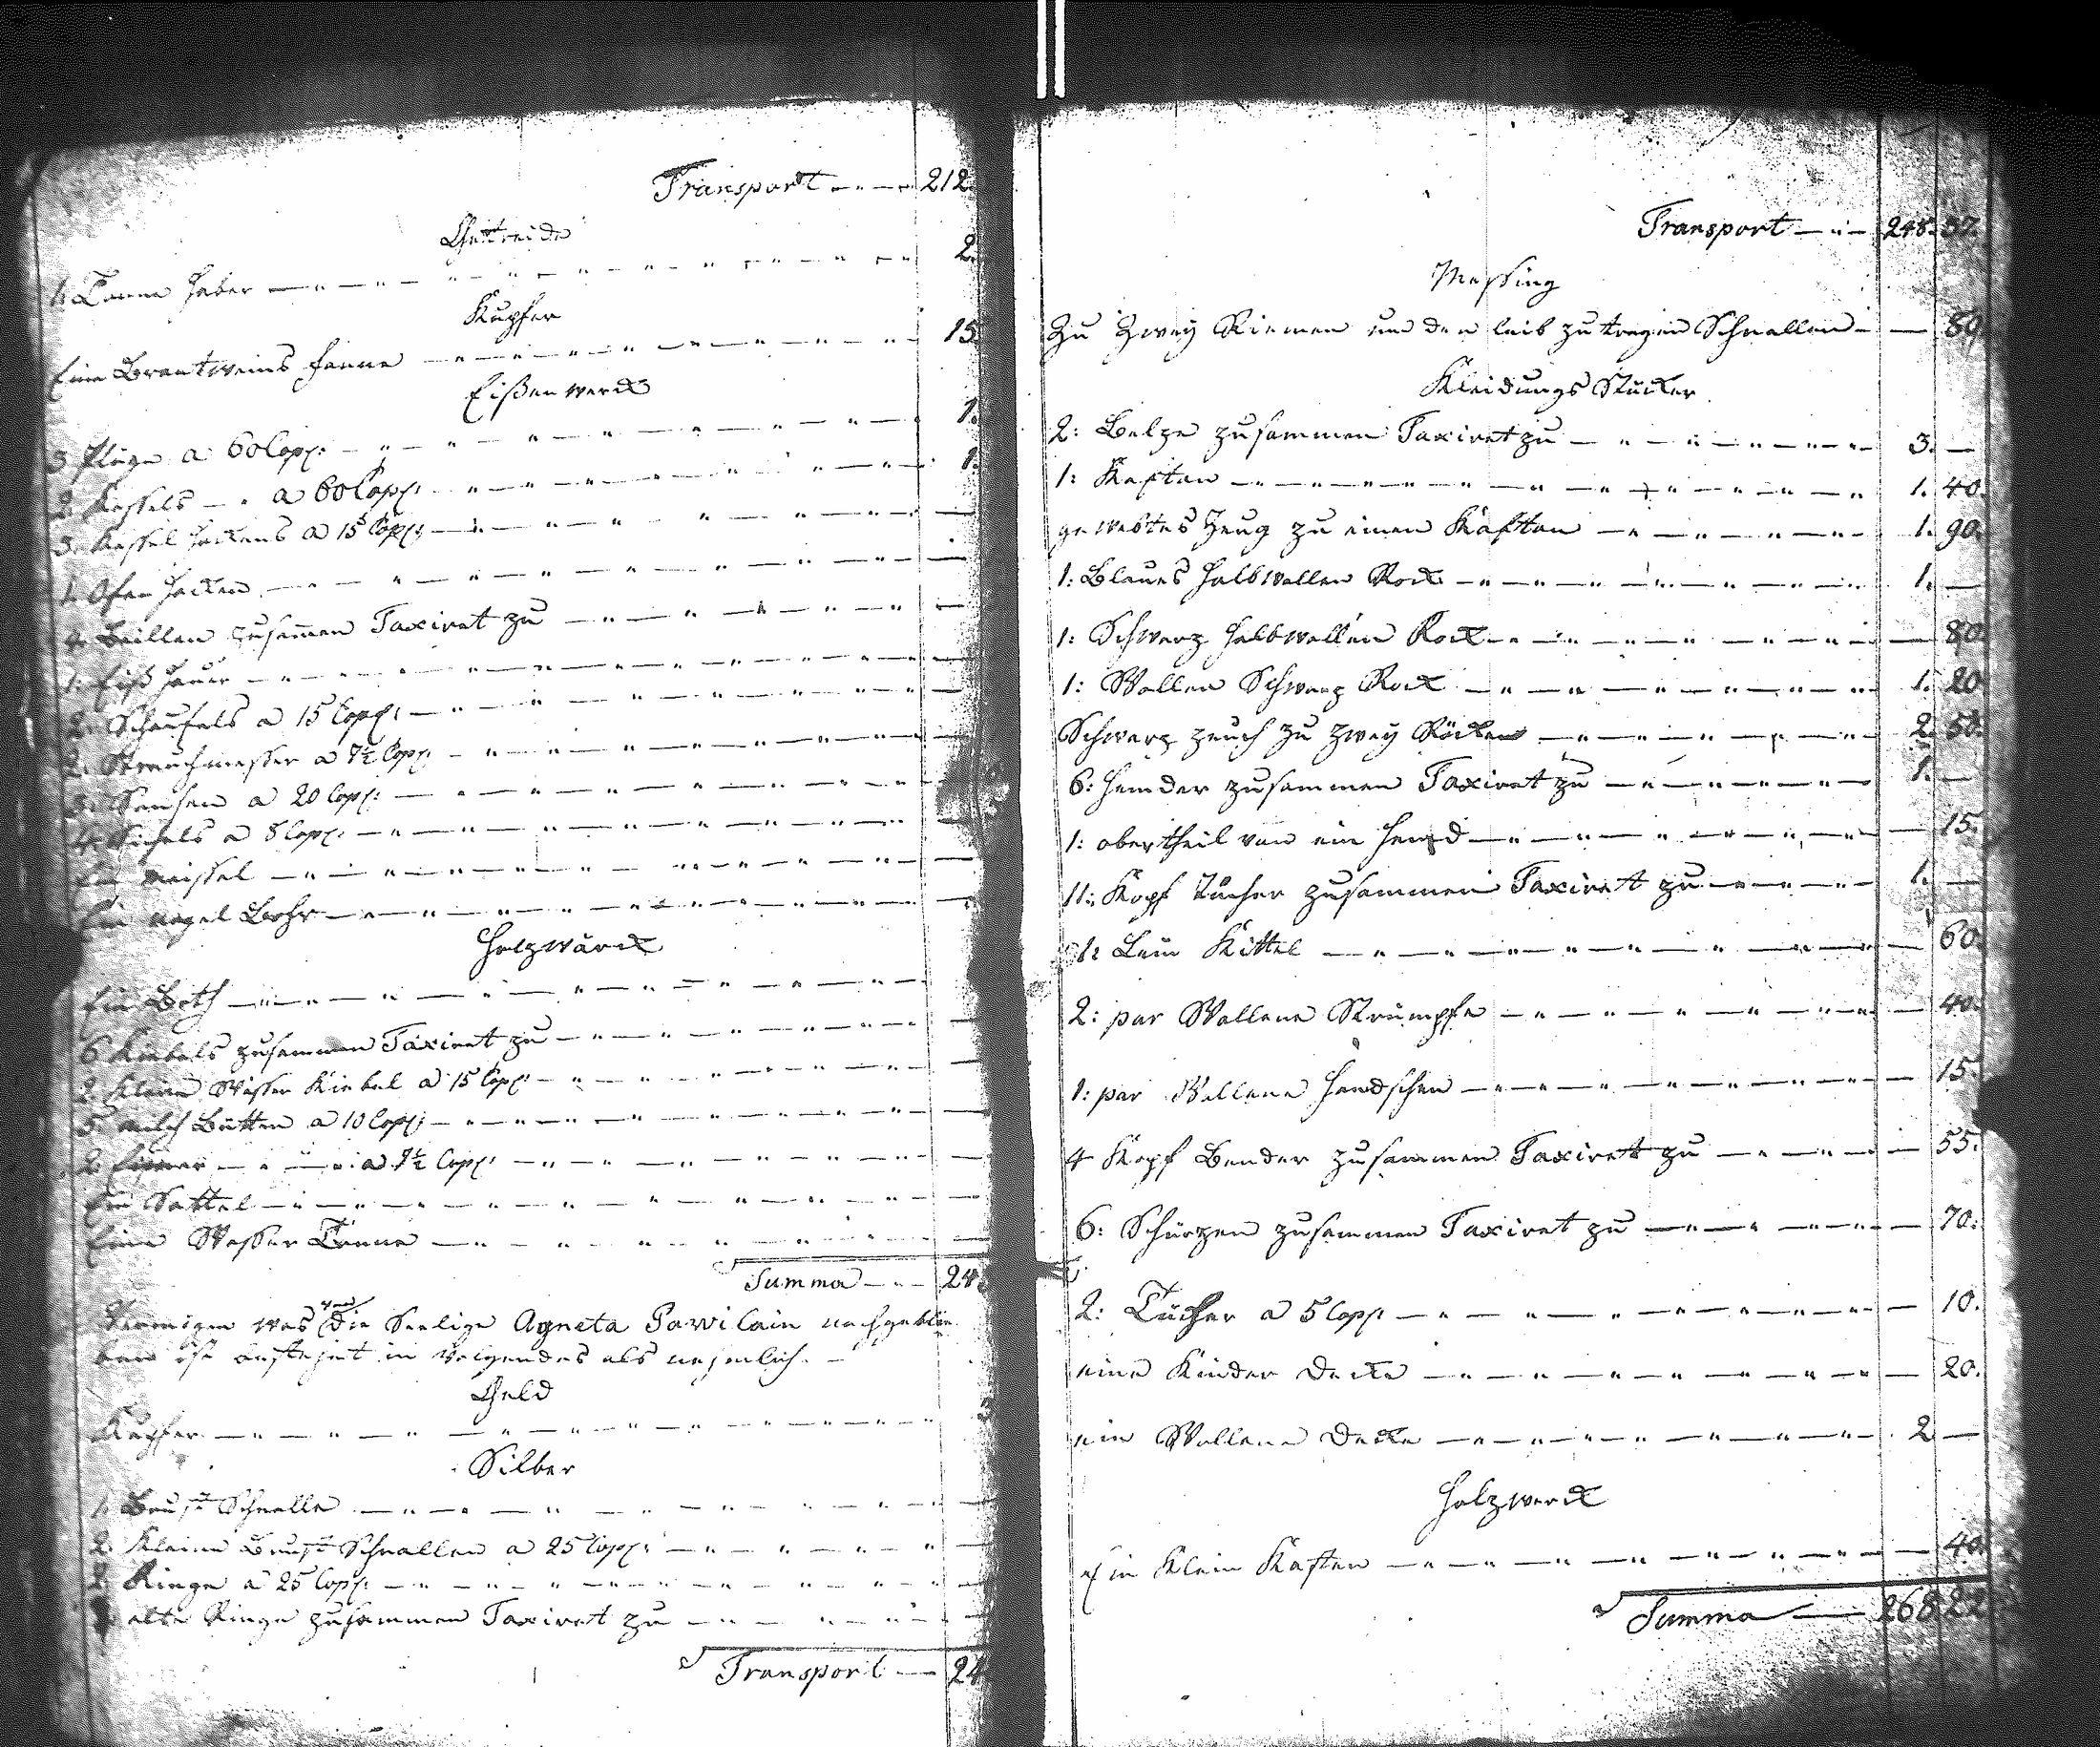 Transport 212.
Gettreide
1: Tonne Haber 2.
Kupfer
Eine Brantweins Panne 15.
Eißenwerck
3 Plüge a 60 Cop: 1.
2 Kessels a 60 Cop: 1.
3. Kessel Hackens a 15 Cop:
1. Ofen Hacken
4 Beillen zusammen Taxiret zu
1. Eiß Hauer
2. Schaufels a 15 Cop:
2. Strauchmesser a 7½ Cop:
3. Sensen a 20 Cop:
4. Sichels a 5 Cop:
Ein Meissel
Ein Nagel Bohr
Holzwärck
Ein Both
6 Kiebels zusammen Taxiret zu
2 Kleine Wasser Kiebel a 15 Cop:
5. Milch Bütten a 10 Cop:
2. Eimer a 7½ Cop:
Ein Sattel
Eine Wasser Tonne
Summa 24
Vermögen was die Seelige Agneta Pawilain nachgeblie
ben ist bestehet in Volgendes als nehmlich.
Geld
Kupfer
Silber
1. Brust Schnalle
2. Kleine Brust Schnallen a 25 Cop:
2. Ringe a 25 Cop:
alte Ringe zusammen Taxiret zu
Transport 24
Transport 245. 37.
Messing
Zu Zwey Riemen um den leib zu tragen Schnallen 80
Kleidungs Stücker
2: Belze zusammen Taxiret zu 3.
1: Kaftan 1. 40.
gewebtes Zeug zu einen Kaftan 1. 90.
1: Blaues Halbwollen Rock 1.
1: Schwarz Halbwollen Rock 80.
1: Wollen Schwarz Rock 1. 20
Schwarz Zeuch zu Zwey Röcken 2. 50.
6: Hemder zusammen Taxiret zu 1.
1: obertheil von ein Hemd 15.
11: Kopf Tücher zusammen Taxiret zu 1.
1: Lein Kittel 60.
2: par Wollene Strümpfe 40.
1: par Wollene Handschen 15.
4 Kopf Bender zusammen Taxiret zu 55.
6: Schürzen zusammen Taxiret zu 70.
2: Tücher a 5 Cop: 10.
eine Kinder Decke 20.
ein Wollene Decke 2
Holzwerck
Ein Klein Kasten 40.
Summa 268. 22